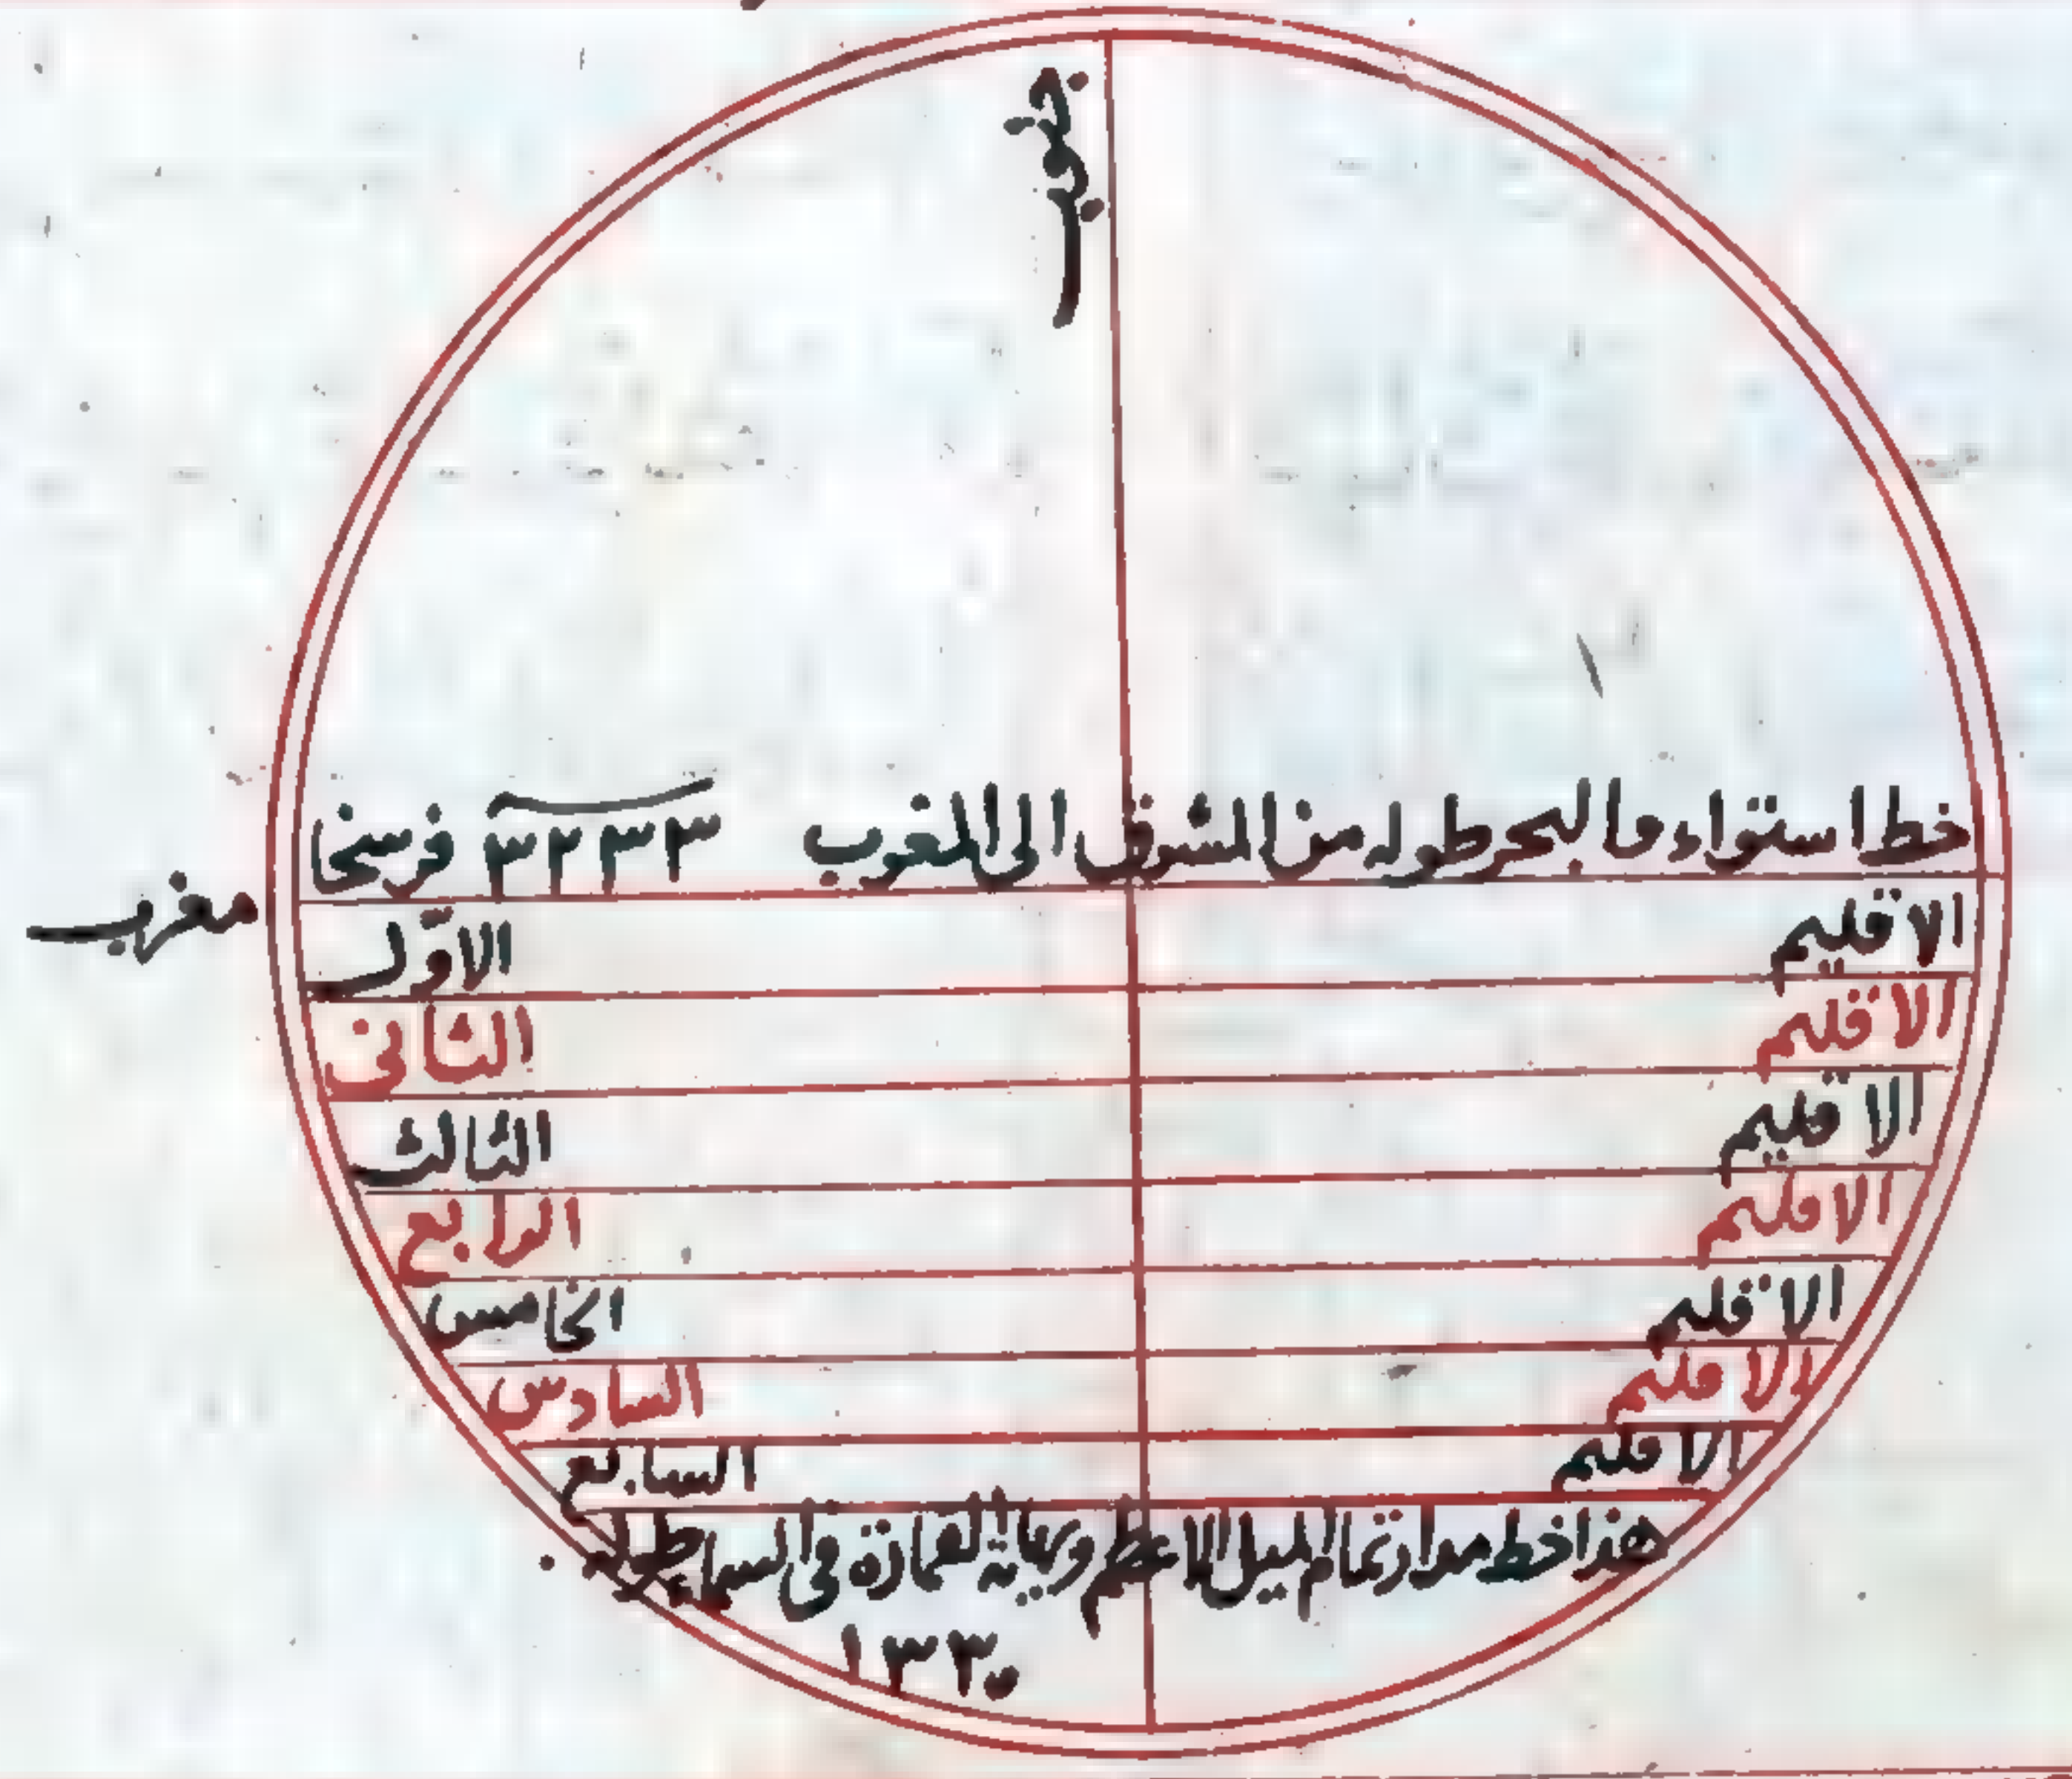 خط استواء ما البحر طوله من المشرق الى المغرب ٣٢٣٣ فرسخا
مغرب
الاقليم الاوّل
الاقليم الثانى
الاقليم الثالث
الاقليم الرابع
الاقليم الخامس
الاقليم السادس
الاقليم السابع
هذا خط مدار تمام الميل الاعظم العمارة فى السما طوله
١٣٣٠